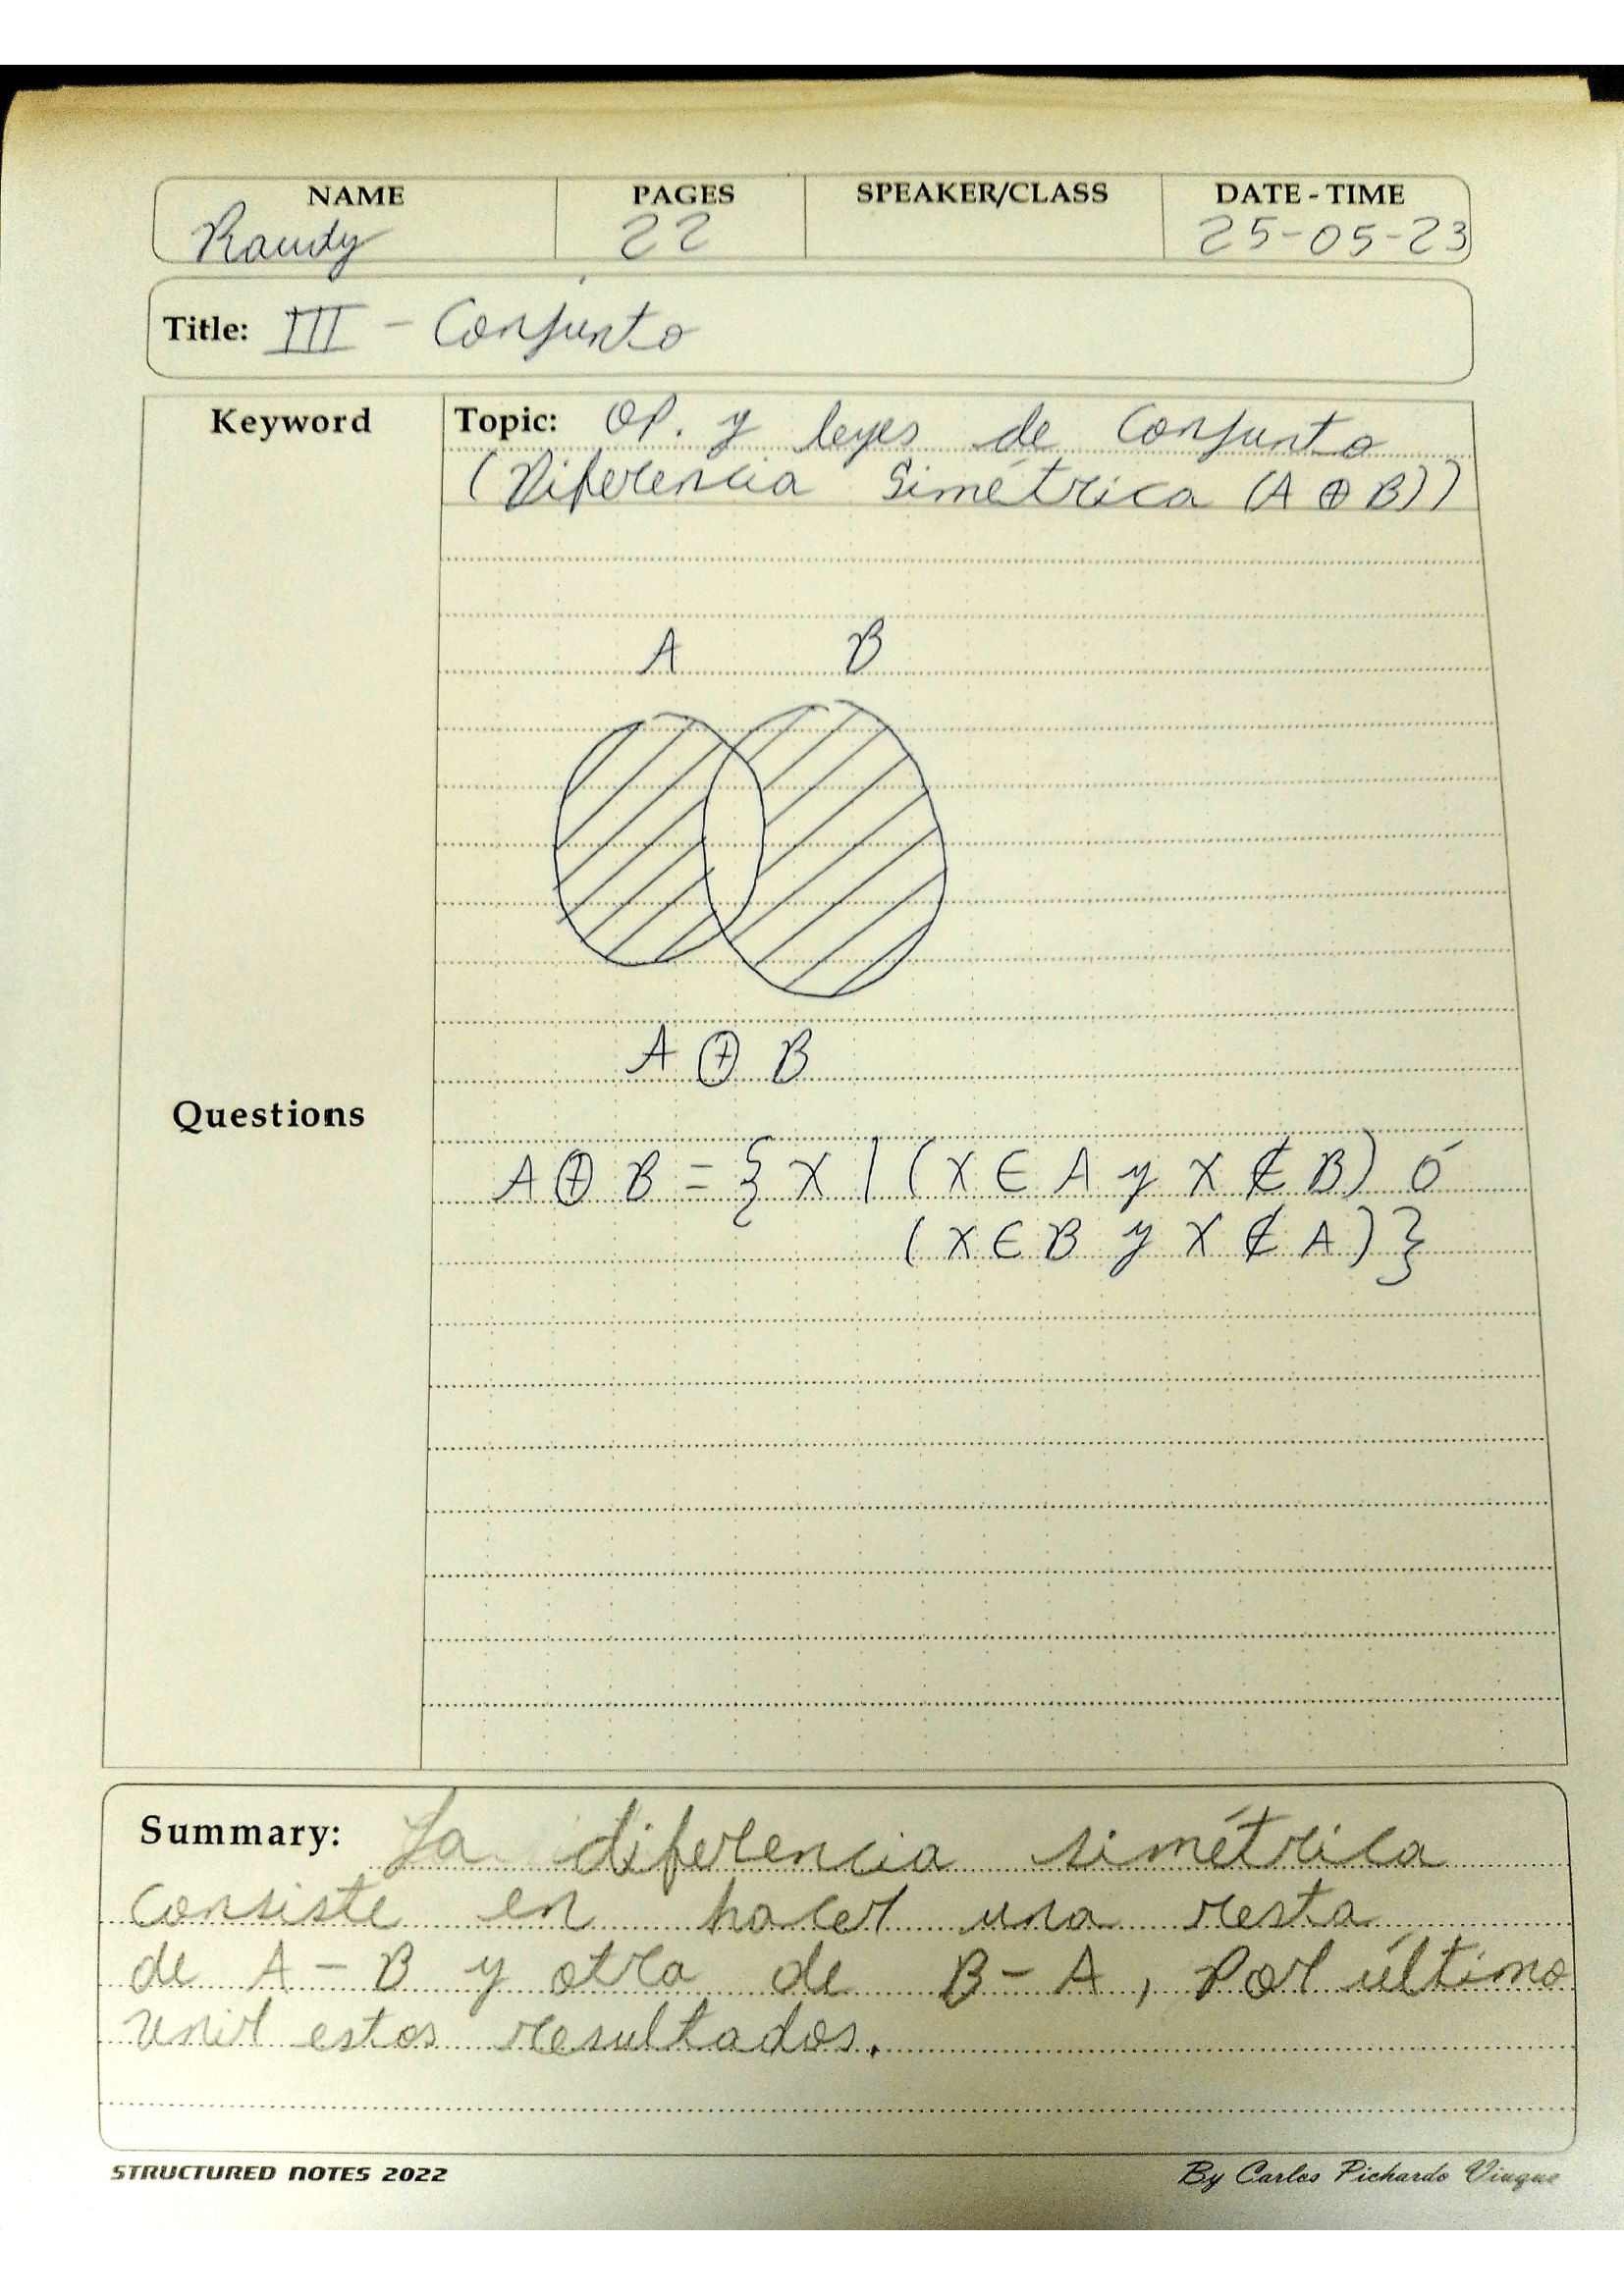 NAME PAGES SPEAKER/CLASS DATE - TIME
Randy 22 25-05-23
Title: III - Conjunto
Keyword
Topic: Op. y leyes de Conjunto
(Diferencia Simétrica (A ⊕ B))
A B
A ⊕ B
Questions
A ⊕ B = { X | (X ∈ A y X ∉ B) ó
(X ∈ B y X ∉ A) }
Summary: La diferencia simétrica
consiste en hacer una resta
de A - B y otra de B - A, por último
unir estos resultados.
STRUCTURED NOTES 2022 By Carlos Pichardo Viuque